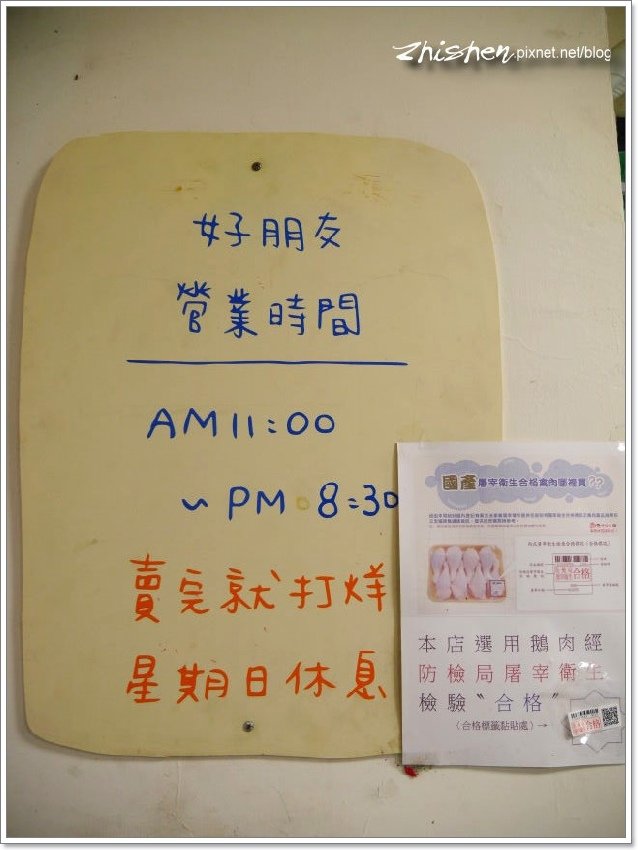 zhishen.pixnet.net/blog
好朋友
營業時間
AM11:00
~PM 8:30
賣完就打烊
星期日休息
國產屠宰衛生合格禽肉哪裡買??
本店選用鵝肉經
防檢局屠宰衛生
檢驗〝合格〞
(合格標籤黏貼處)→
合格